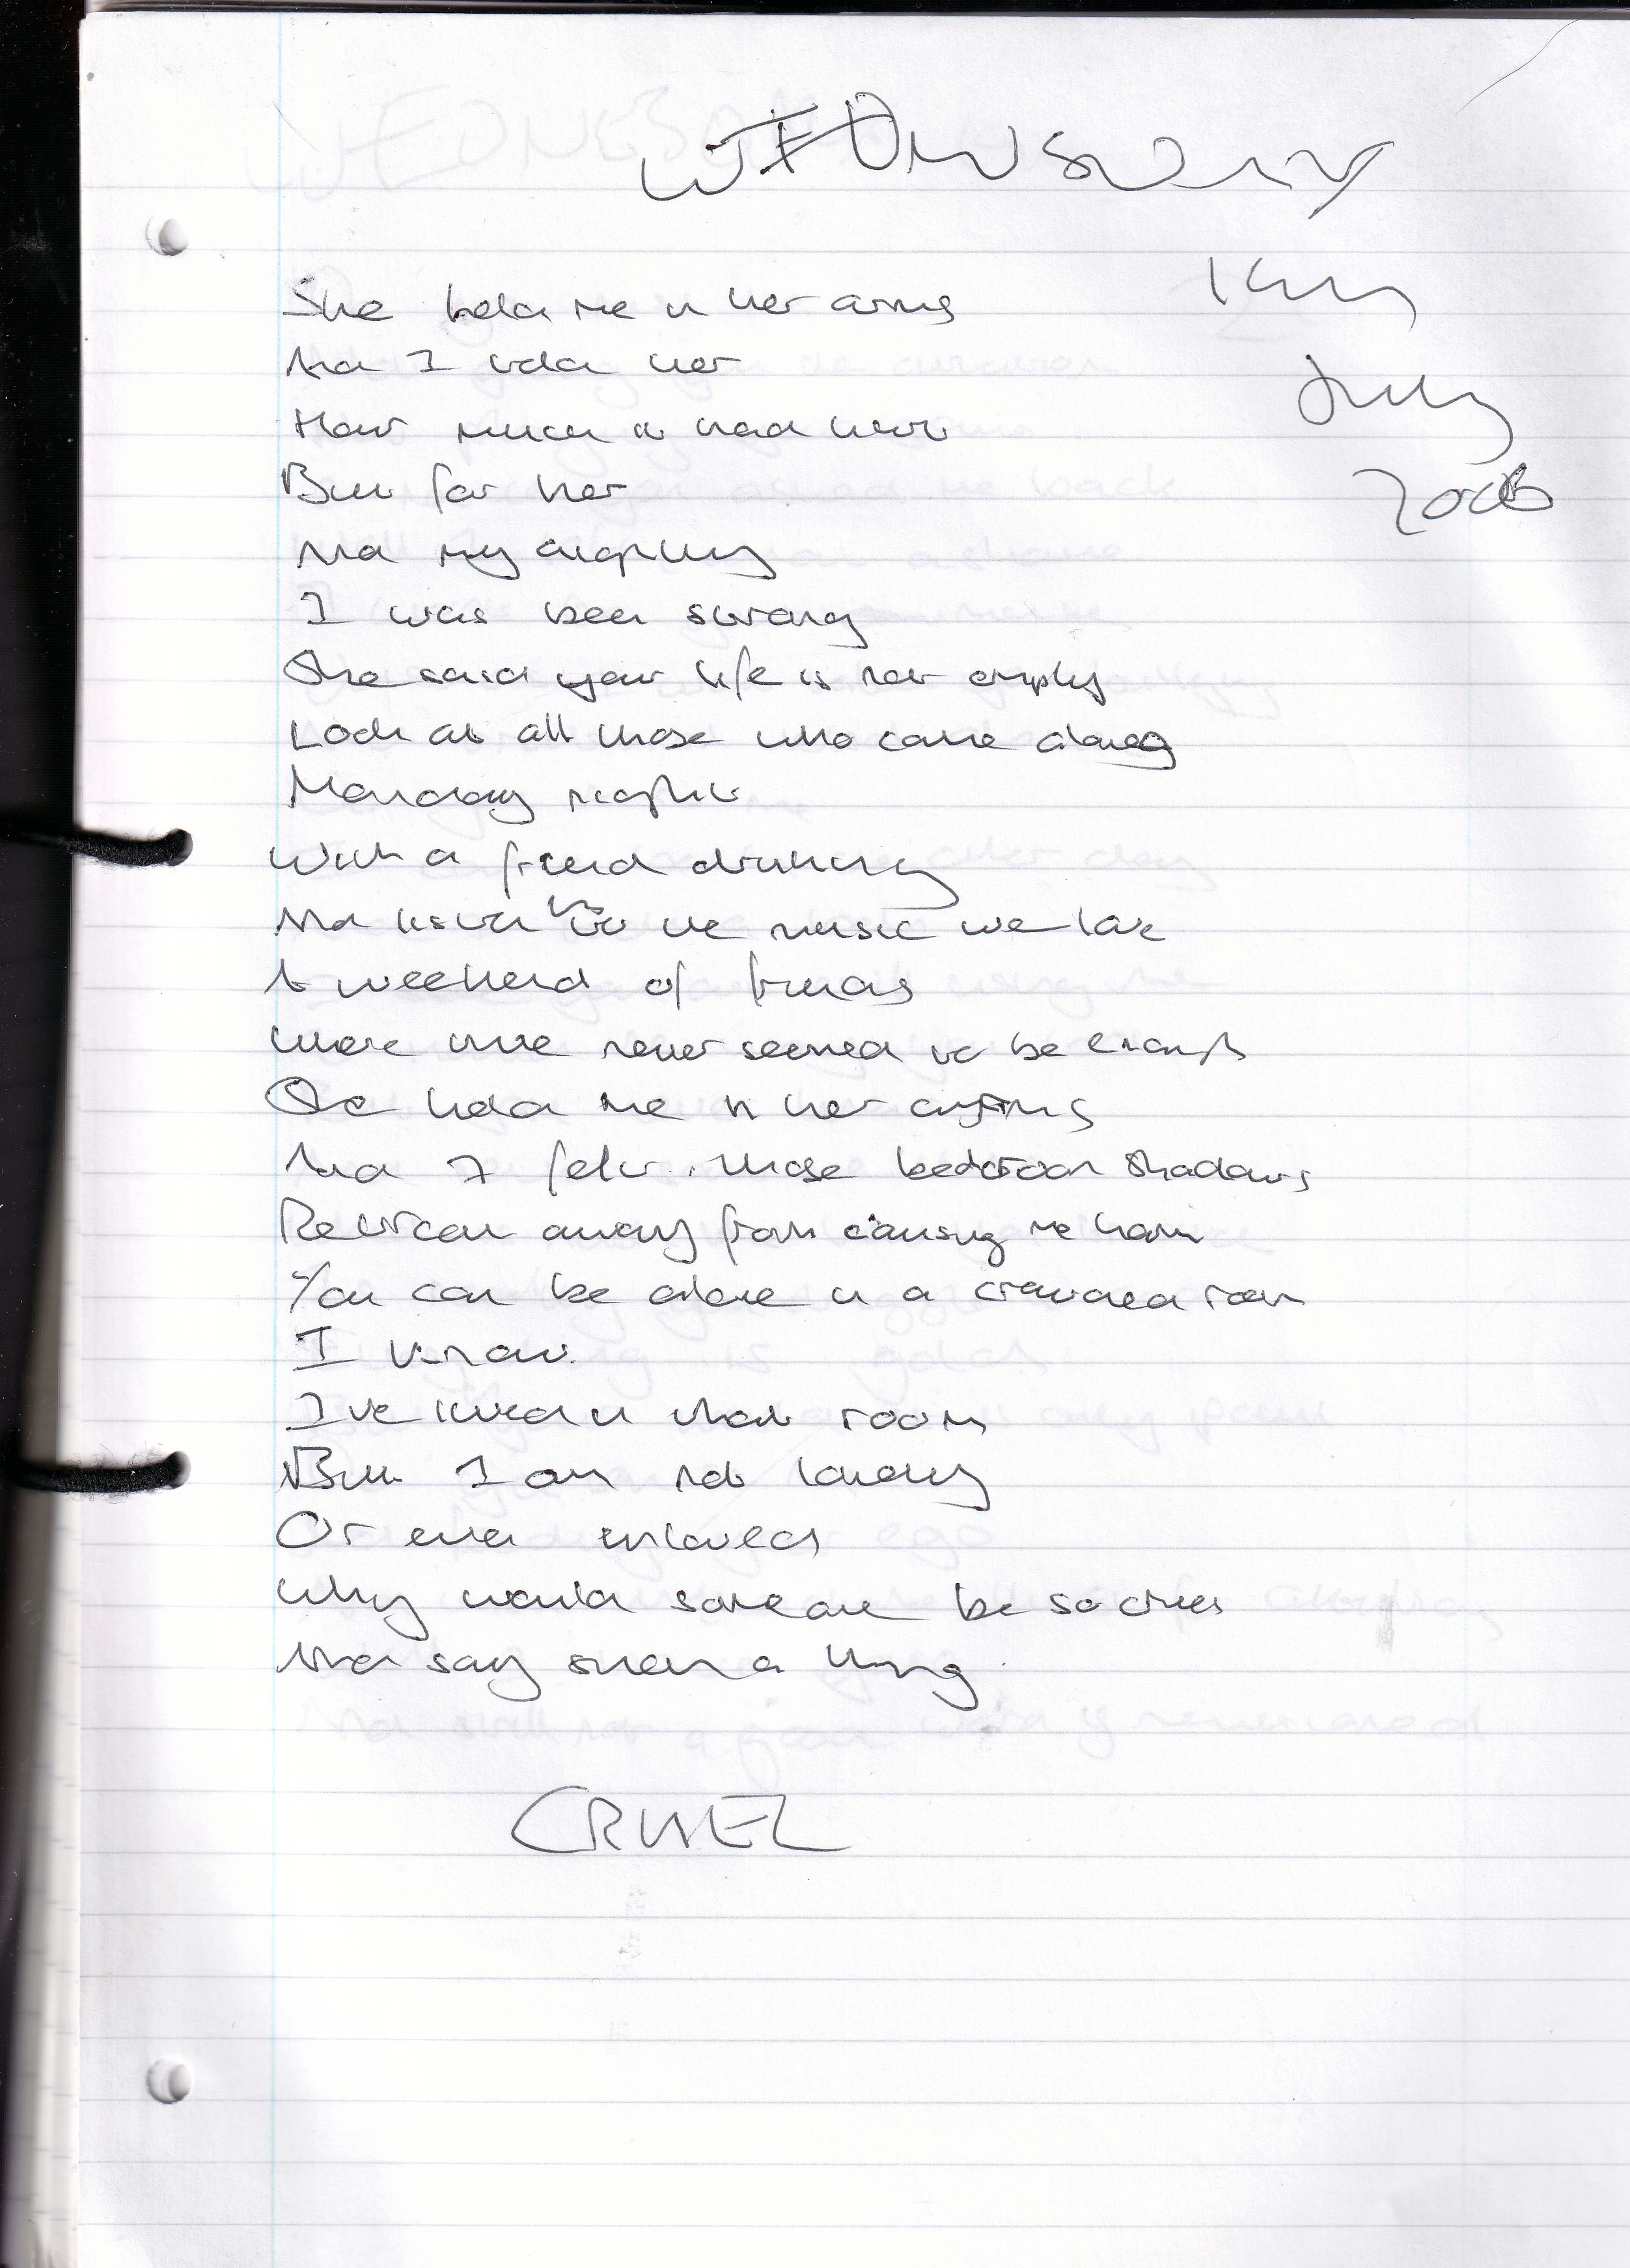 WEDNESDAY
July
She held me in her arms
And I told her
How much it had hurt
But for her
And my
I was been strong
She said your life is not empty
Look at all those who came along
Monday night
With a friend drinking
And listening to the music we love
A weekend of friends
Where time never seemed to be enough
She held me in her arms
And I felt those bedroom shadows
Retreat away from causing me harm
You can be alone in a crowded room
I know.
I've lived in that room
But I am not lonely
Or even unloved
Why would someone be so cruel
And say such a thing
CRUEL